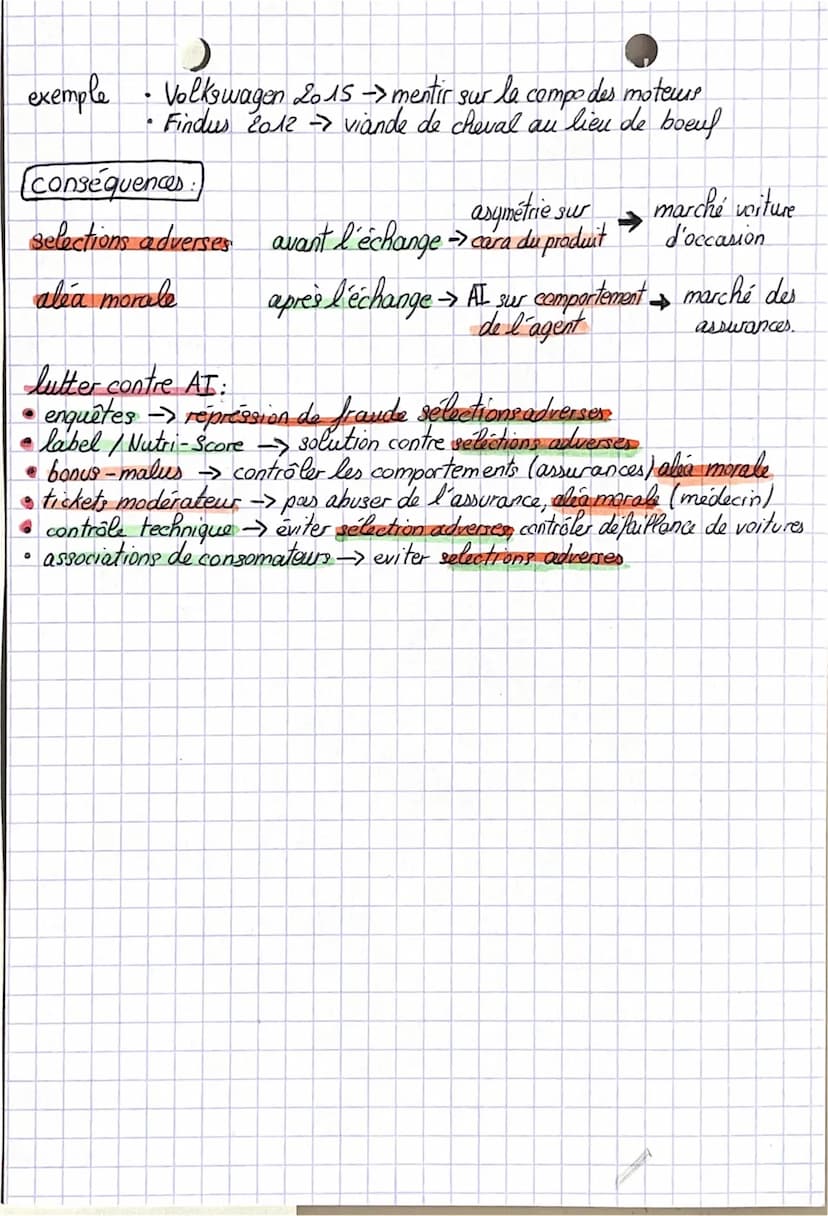 exemple • Volkswagen 2015 → mentir sur la compo des moteurs
• Findus 2012 → viande de cheval au lieu de boeuf
conséquences :
selections adverses avant l'échange → asymétrie sur cara du produit → marché voiture d'occasion
aléa morale après l'échange → AI sur comportement de l'agent → marché des assurances.
lutter contre AI :
• enquêtes → répréssion de fraude sélections adverses
• label / Nutri-Score → solution contre séléctions adverses
• bonus-malus → contrôler les comportements (assurances) aléa morale
• tickets modérateur → pas abuser de l'assurance, aléa morale (médecin)
• contrôle technique → éviter sélection adverses, contrôler défaillance de voitures
• associations de consomateurs → eviter selections adverses